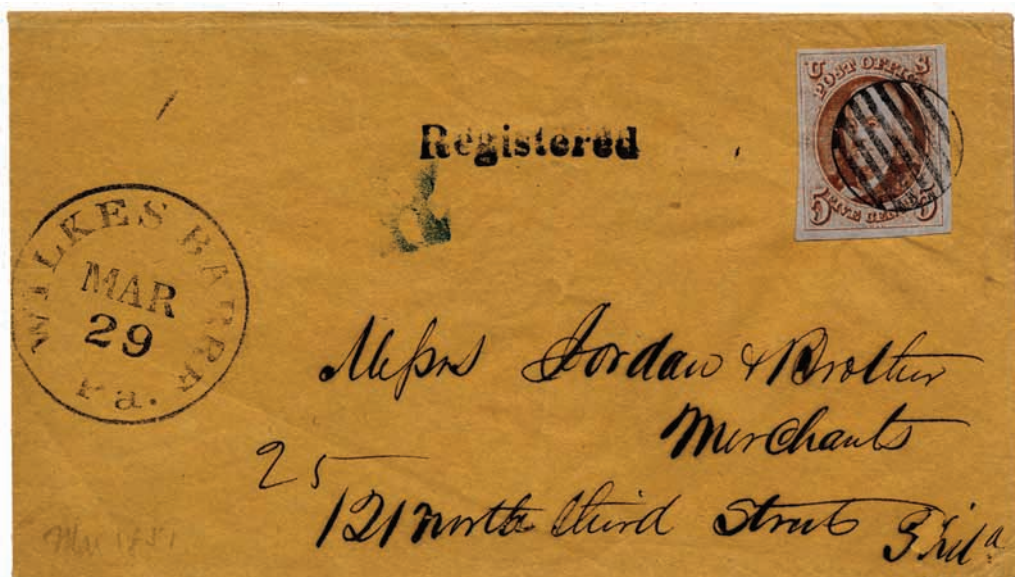 U S
POST OFFICE
FIVE CENTS
Registered
R
WILKES BARRE
MAR
29
Pa.
Messrs Jordan & Brother
Merchants
25
121 North third Street Phila
Mar 1851